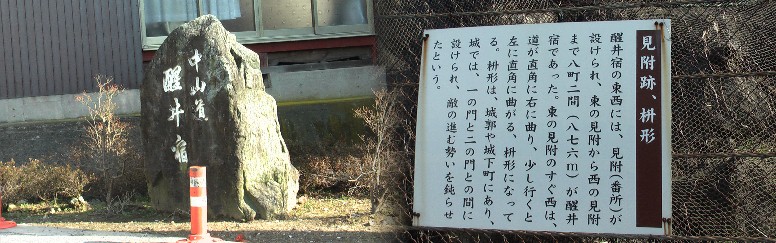 中山道
醒井宿
見附跡、枡形
醒井宿の東西には、見附(番所)が
設けられ、東の見附から西の見附
まで八町二間(八七六m)が醒井
宿であった。東の見附のすぐ西は、
道が直角に右に曲り、少し行くと
左に直角に曲がる、枡形になって
る。枡形は、城郭や城下町にあり、
城では、一の門と二の門との間に
設けられ、敵の進む勢いを鈍らせ
たという。